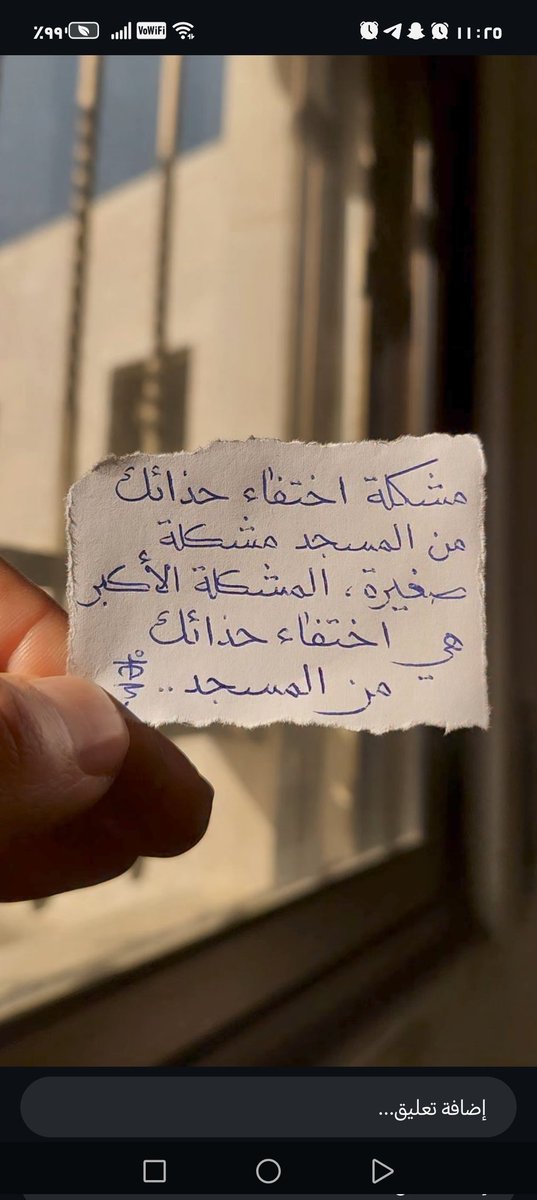 ٪٩٩ VoWiFi ١١:٢٥
مشكلة اختفاء حذائك
من المسجد مشكلة
صغيرة، المشكلة الأكبر
هي اختفاء حذائك
من المسجد ..
إضافة تعليق...